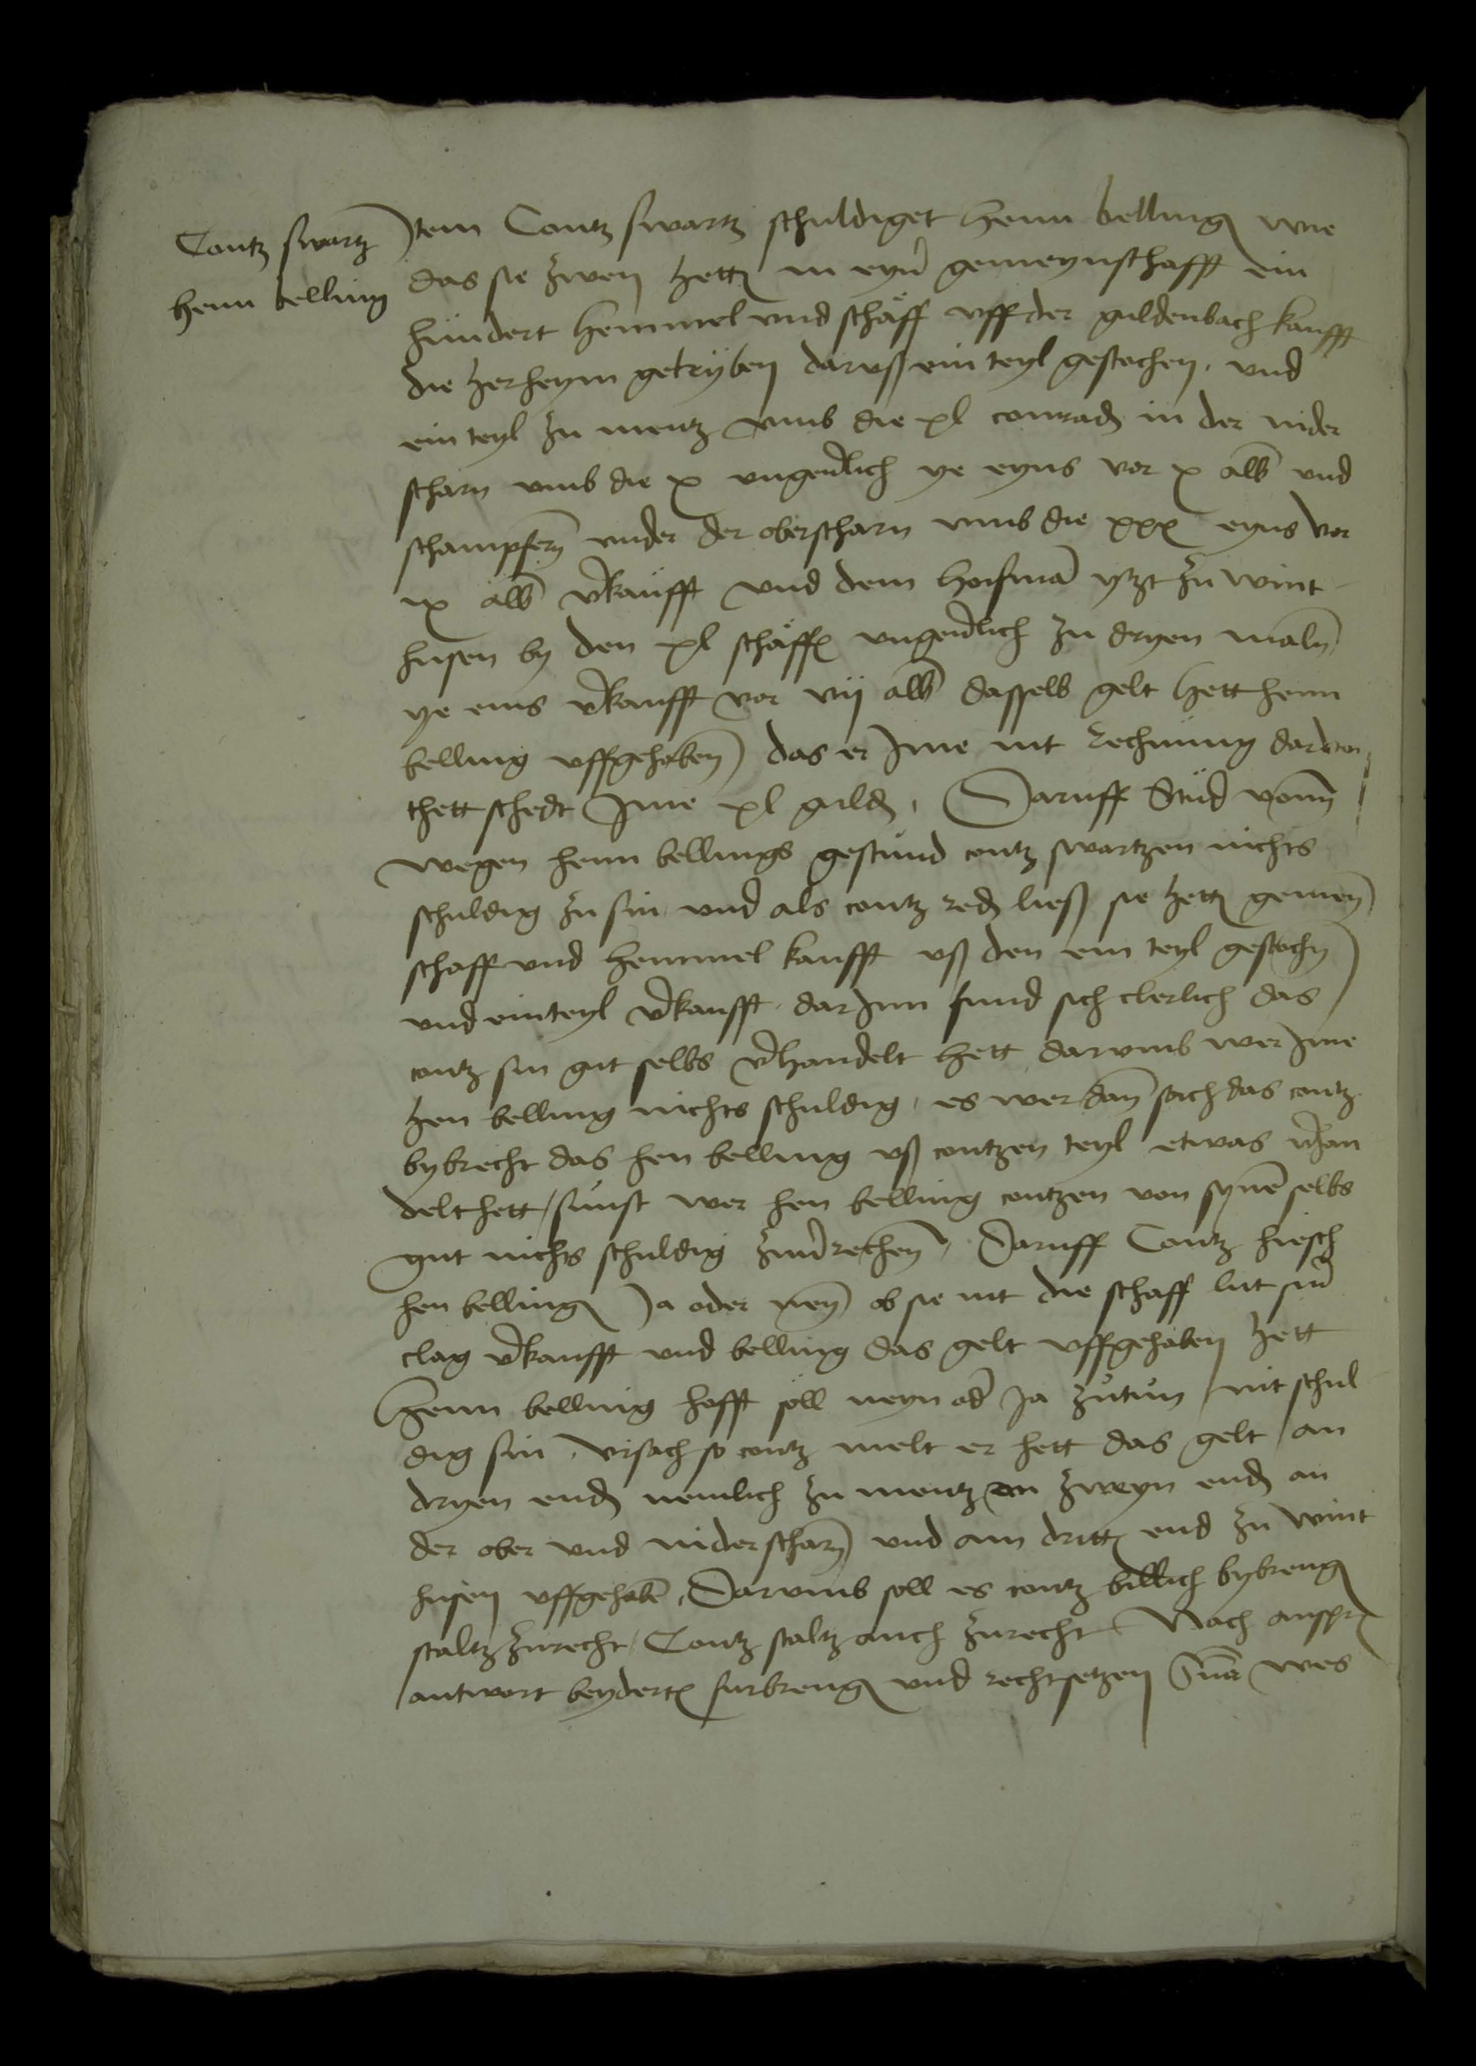 Contz swartz
henn belling
Jtem Contz swartz schuldiget henn belling wie
das sie zwen hett in eyner gemeynschafft ein
hundert hemmel vnd schaff vff der guldenbach kaufft
die herheym getryben daruß ein teyl gestochen . vnd
ein teyl zu mentz vmb die xl conrad in der nider
scharn vmb die x vngeuerlich ye eyns vor x alb vnd
schampfern vnder der oberscharn vmb die xxx eyns vor
ix alb verkaufft vnd dem hoifman ytzt zu wint
husen by den xl schaff vngeuerlich zu dryen maln
ye eins verkaufft vor vij alb dasselb gelt hett henn
belling vffgehaben das er Jme nit rechnung daruon
thett schedt Jme xl guld . Daruff Stud vonn
wegen henn bellings gestund contz swartzen nichts
schuldig zu sin vnd als contz red ließ sie hett gemeyn
schaff vnd hemmel kaufft vß den ein teyl gestochen
vnd ein teyl verkaufft . dar Jnn fund sich clerlich das
contz sin gut selbs verhandelt hett darvmb wer Jme
hen belling nichts schuldig . es wer dan sach das contz
bybrecht das hen belling vß contzen teyl etwas verhan
delt hett / sunst wer hen belling contzen von synem selbs
gut nichts schuldig zuuerrechen . Daruff Contz hiesch
hen belling Ja oder neyn ob sie nit die schaff lut siner
clag verkaufft vnd belling das gelt vffgehaben hett
Henn belling hofft soll neyn oder Ja zutun nit schul
dig sin . vrsach so contz melt er hett das gelt an
dryen end nemlich zu mentz an zweyn end an
der ober vnd niderscharn vnd am dritt end zu wint
husen vffgehaben . Darvmb soll es contz billich bybreng
staltz zurecht / Contz staltz auch zurecht Nach anspr
antwort beyderte furbreng vnd rechtsetzen Sentencia wes